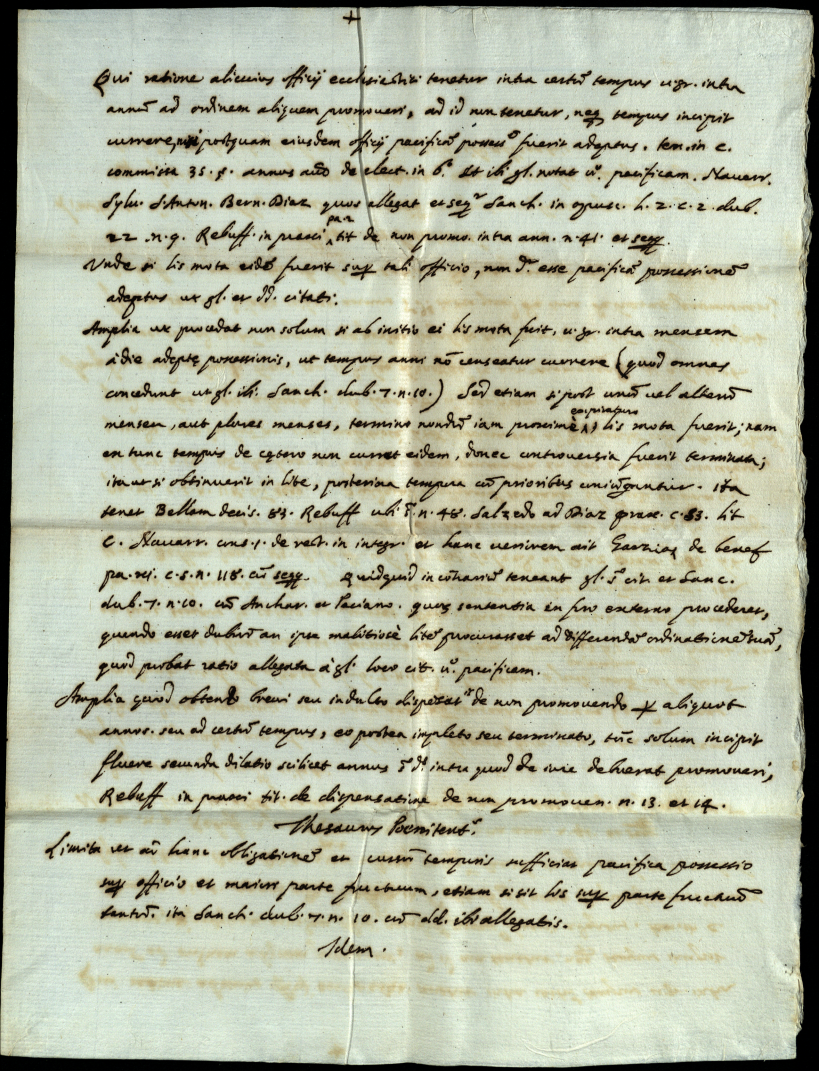 +
Qui ratione alicuius officij ecclesiastici tenetur intra certũ tempus u.gr. intra
annũ ad ordinem aliquem promoueri, ad id non tenetur, neq tempus incipit
currere, nisi postquam eiusdem officij pacificã possess.ẽ fuerit adeptus. tex. in c.
commissa 35. §. annus aũo de elect. in 6.º et ibi gl. notat uº. pacificam. Nauarr.
Sylu. S. Anton. Bern. Diaz quos allegat et seqr Sanch. in opusc. l. 2. c. 2. dub.
22. n. 9. Rebuff. in praxi pa. 2 tit de non promo. intra ann. n. 41. et seqq.
Unde si lis mota eidẽ fuerit sup tali officio, non dr. esse pacificã possessionẽ
adeptus ut gl. et dd. citati.
Amplia ut procedat non solum si ab initio ei lis mota fuit, u.gr. intra mensem
à die adeptę possessionis, ut tempus anni nõ censeatur currere (quod omnes
concedunt ut gl. ibi. Sanch. dub. 7. n. 10.) Sed etiam si post unũ uel alterũ
mensem, aut plures menses, termino nondũ iam proximè expiraturo, lis mota fuerit; nam
en tunc tempus de cętero non curret eidem, donec controuersia fuerit terminata;
ita ut si obtinuerit in lite, posteriora tempora cũ prioribus coniũgantur. Ita
tenet Bellam decis. 83. Rebuff ubi s. n. 48. Salzedo ad Diaz prax. c. 83. lit
C. Nauarr. cons. 1. de rest. in integr. et hanc ueriorem ait Garzias de benef
pa. xi. c. 5. n. 118. cũ seqq. Quidquid in cõtrariũ teneant gl. s. cit. et Sanc.
dub. 7. n. 10. cũ Anchar. et Paciano. quorũ sententia in foro externo procederet,
quando esset dubiũ an ipse malitiosè litẽ procurasset ad differendã ordinationẽ suã,
quod probat ratio allegata à gl. loco cit. uº. pacificam.
Amplia quod obtento breui seu indulto dispẽsatr de non promouendo p aliquot
annos. seu ad certũ tempus, eo postea impleto seu terminato, tũc solum incipit
fluere secunda dilatio scilicet annus s. d. intra quod de iure debuerat promoueri;
Rebuff in praxi tit. de dispensatione de non promouen. n. 13. et 14.
Thesaurus Poenitent.
Limita ut ad hanc obligationẽ et cursũ temporis sufficiat pacifica possessio
sup officio et maiori parte fructuum, etiam si sit lis sup parte fructuũ
tantũ. ita Sanch. dub. 7. n. 10. cũ dd. ibi allegatis.
Idem.